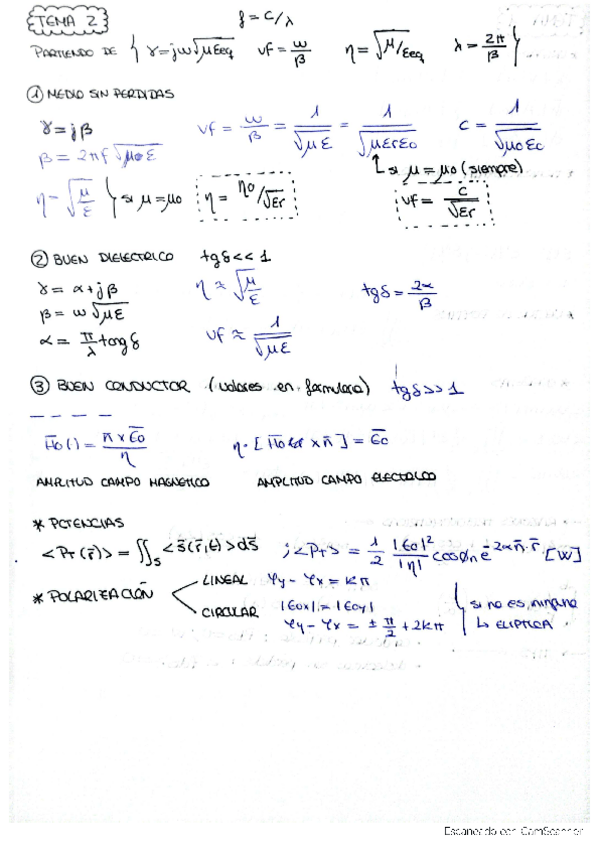 TEMA 2 f = c/λ
PARTIENDO DE { γ = jω√μεeq vf = ω/β η = √μ/εeq λ = 2π/β }
① MEDIO SIN PERDIDAS
γ = jβ vf = ω/β = 1/√με = 1/√μεrεo c = 1/√μoεo
β = 2πf √μoε
↳ si μ = μo (siempre)
η = √μ/ε } si μ = μo η = ηo/√εr vf = c/√εr
② BUEN DIELECTRICO tgδ << 1
γ = α + jβ η ≈ √μ/ε tgδ = 2α/β
β = ω√με
α = π/λ tangδ vf ≈ 1/√με
③ BUEN CONDUCTOR (valores en formulario) tgδ >> 1
H̄o() = n̄ x Ēo/η η · [H̄o x n̄] = Ēo
AMPLITUD CAMPO MAGNETICO AMPLITUD CAMPO ELECTRICO
* POTENCIAS
<PT(r̄)> = ∬s <s̄(r̄,t)> ds̄ ; <PT> = 1/2 |Eo|²/|η| cosØn e^-2αn̄·r̄ [W]
* POLARIZACIÓN
LINEAL φy - φx = kπ
CIRCULAR |Eox| = |Eoy|
φy - φx = ± π/2 + 2kπ
} si no es ninguna
↳ ELIPTICA
Escaneado con CamScanner